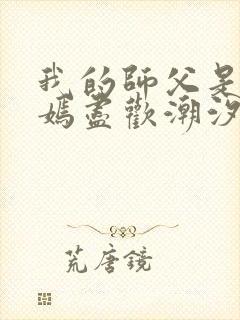 我的師父是
媽盡歡潮汐
荒唐鏡